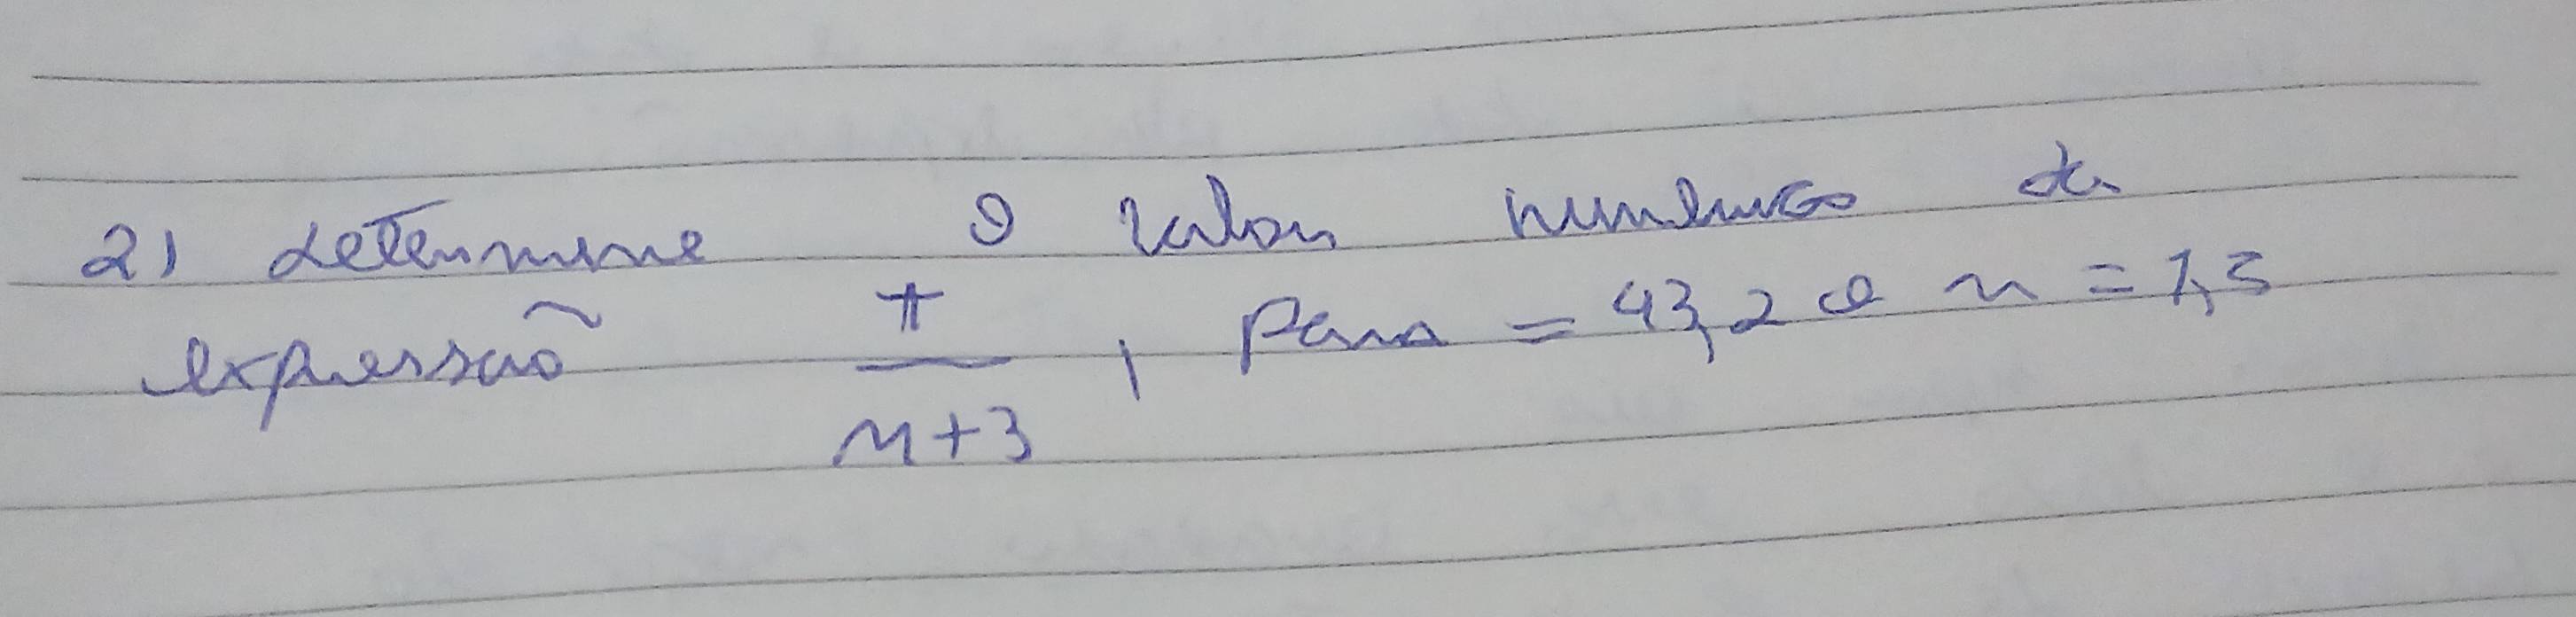 21 determine o valor numerico da
expressão t / n+3 , para = 43,2 e n = 1,5